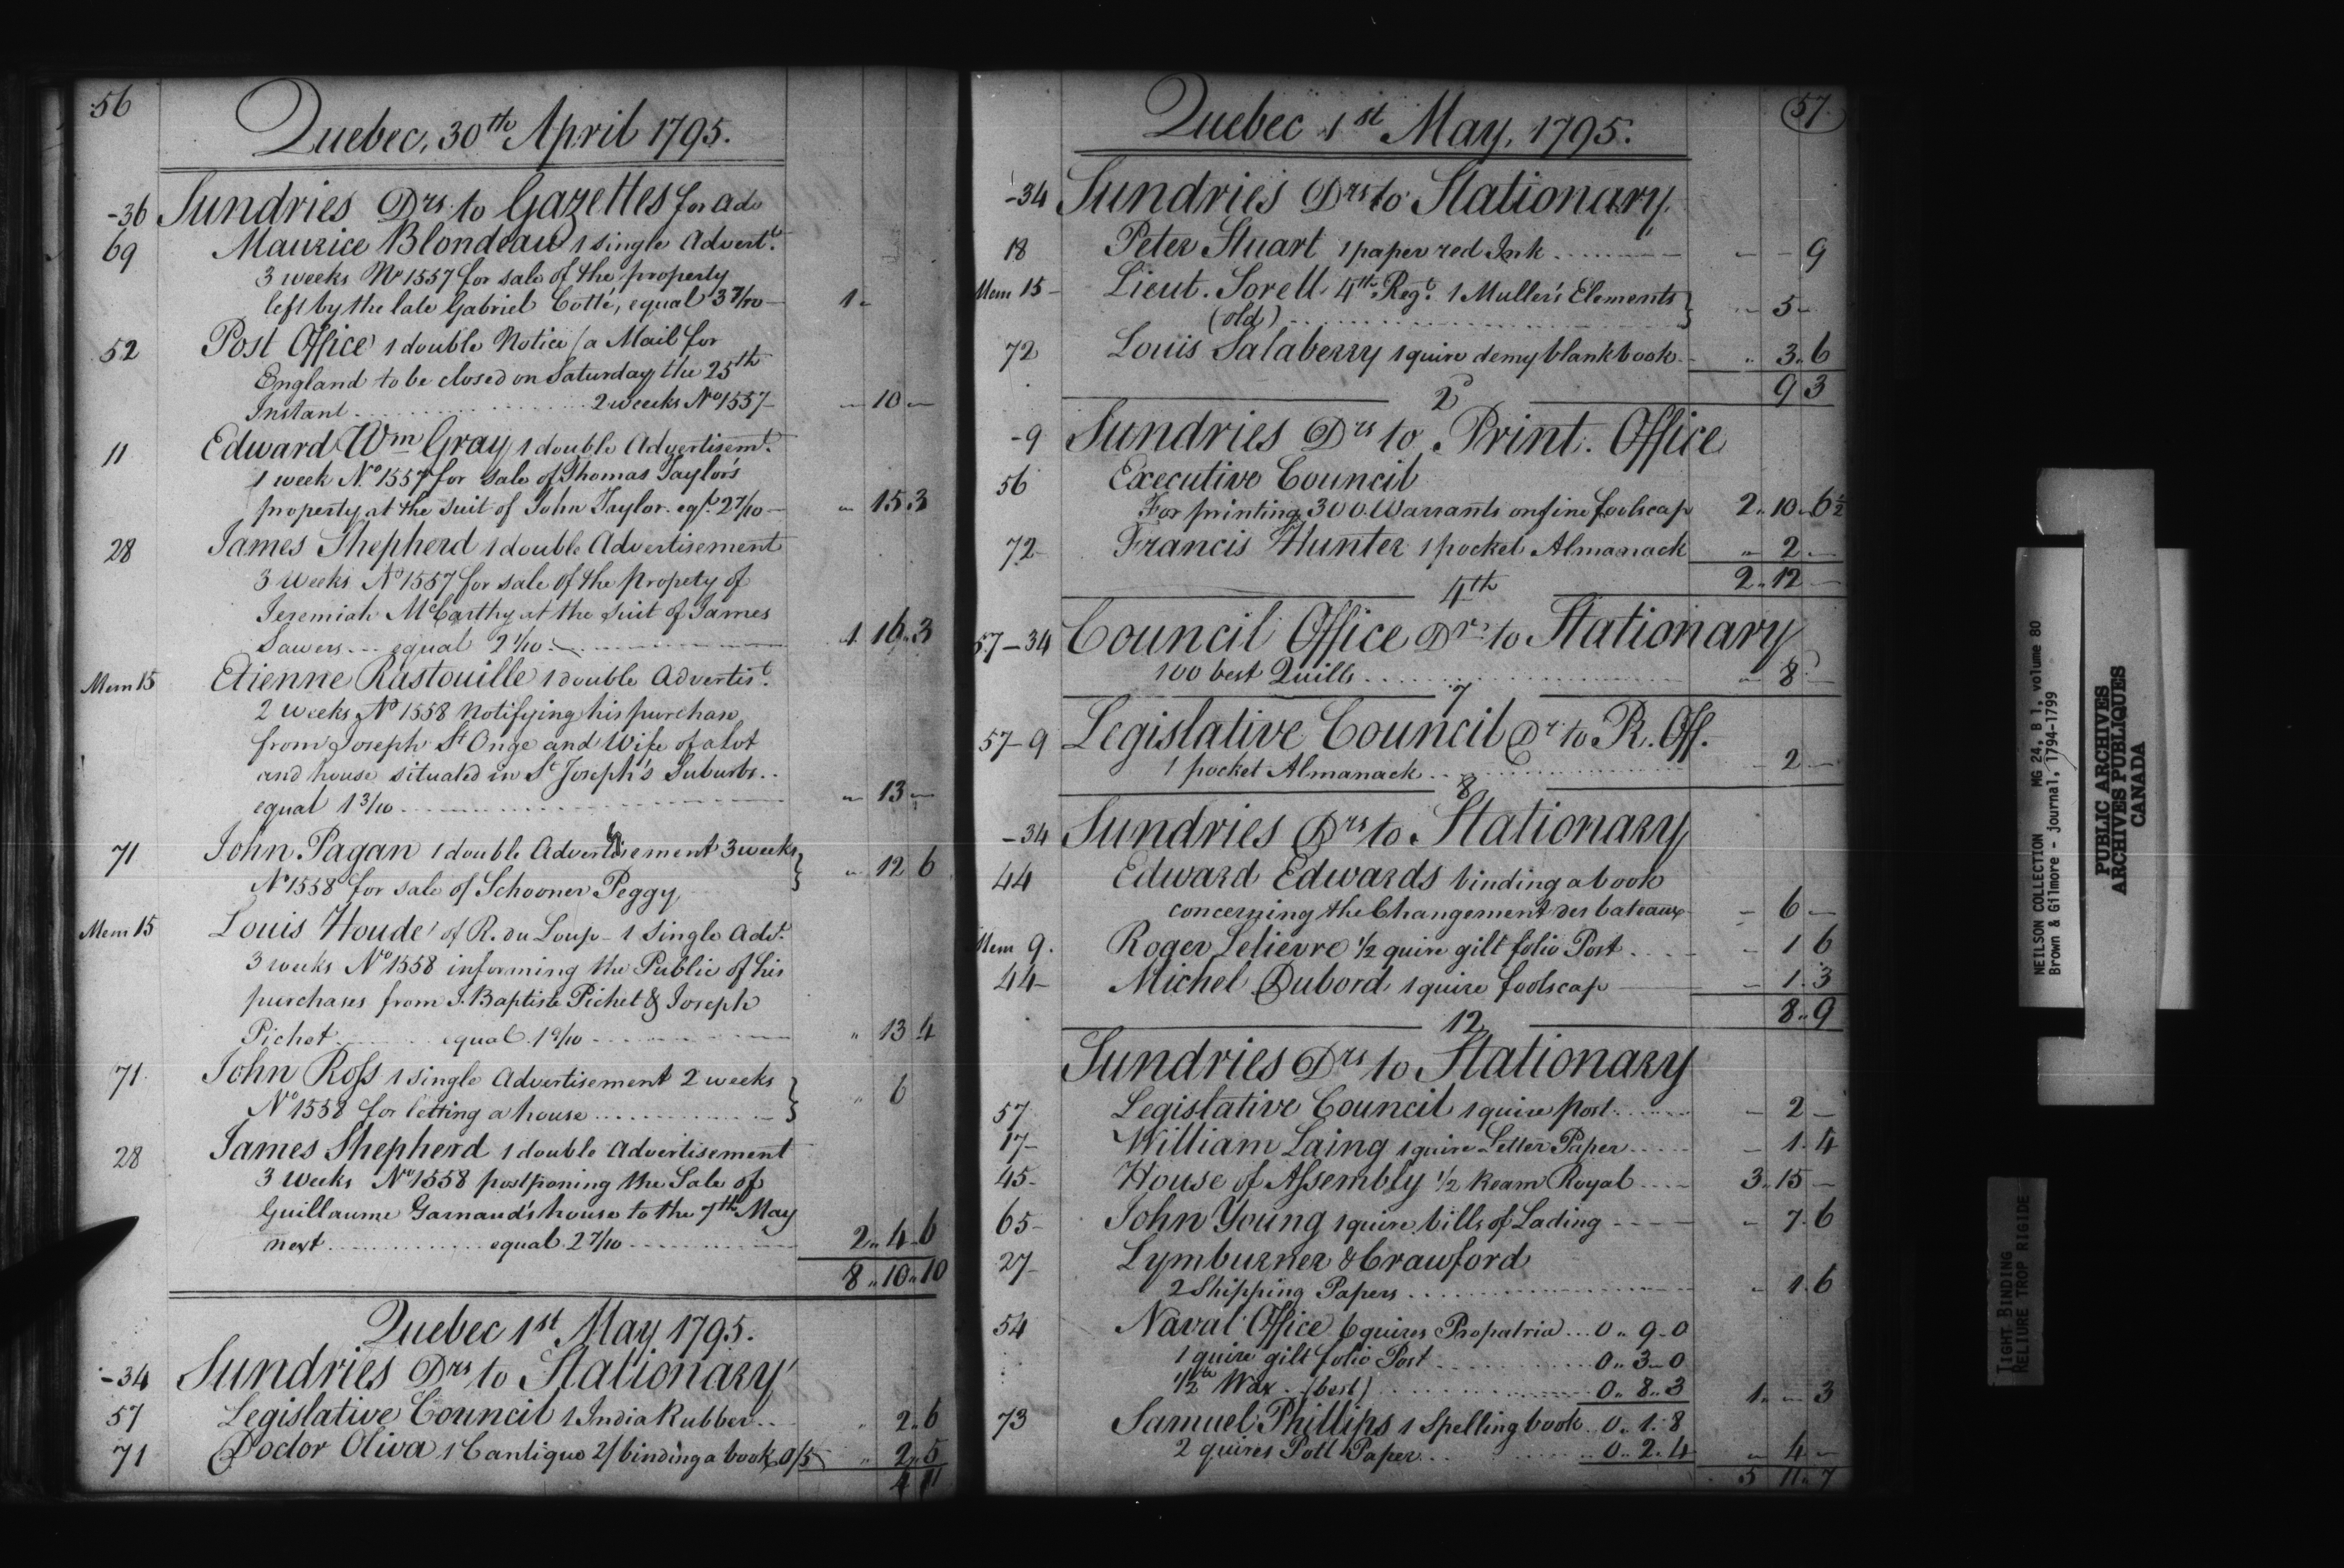 56
Quebec, 30th April 1795.
-36 Sundries Drs. to Gazettes for adv
69 Maurice Blondeau 1 single Advert.t
3 weeks No 1557 for sale of the property
left by the late Gabriel Cotté, equal 3 7/10 — 1 "
52 Post Office 1 double Notice / a Mail for
England to be closed on Saturday the 25th
Instant ........ 2 weeks No 1557 — " 10 "
11 Edward Wm Gray 1 double Advertisemt.
1 week No. 1557 for sale of Thomas Taylor's
property at the suit of John Taylor. eql. 2 7/10 — " 15 3
28 James Shepherd 1 double Advertisement
3 weeks No 1557 for sale of the propety of
Jeremiah McCarthy at the suit of James
Sawers ... equal 2 1/10 — 1 16 3
Mem 15 Etienne Rastouille 1 double Advertist.
2 weeks No 1558 Notifying his purchase
from Joseph St Onge and Wife of a lot
and house situated in St Joseph's Suburbs ..
equal 1 3/10 ........ " 13 "
71 John Pagan 1 double Advertisement 3 weeks
No 1558 for sale of Schooner Peggy } " 12 6
Mem 15 Louis Houde of R. du Loup - 1 single Adt.
3 weeks No 1558 informing the Public of his
purchases from J. Baptiste Pichet & Joseph
Pichet ........ equal 1 9/10 ........ " 13 4
71 John Ross 1 single Advertisement 2 weeks
No 1558 for letting a house ........ } " 6
28 James Shepherd 1 double Advertisement
3 weeks No 1558 postponing the Sale of
Guillaume Garnaud's house to the 7th May
next ........ equal 2 7/10 ........ 2 " 4 " 6
8 " 10 " 10
Quebec 1st May 1795.
-34 Sundries Drs to Stationary
57 Legislative Council 1 India Rubber .. " 2 " 6
71 Doctor Oliva 1 Cantique 2/ binding a book 0/5 " 2 " 5
4 11
57.
Quebec 1st May, 1795.
-34 Sundries Drs to Stationary
18 Peter Stuart 1 paper red Ink ........ " - 9
Mem 15 - Lieut. Sorell 4th Regt. 1 Muller's Elements
(old) ........ } " 5 "
72 Louis Salaberry 1 quire demy blank book - " 3 " 6
9 3
2d
-9 Sundries Drs to Print. Office
56 Executive Council
For printing 300 Warrants on fine foolscap 2 " 10 " 6½
72 Francis Hunter 1 pocket Almanack " 2 "
2 " 12 —
4th
57-34 Council Office Dr. to Stationary
100 best Quills ........ " 8 —
7
57-9 Legislative Council Dr to P. Off.
1 pocket Almanack ........ - 2 —
8
-34 Sundries Drs to Stationary
44 Edward Edwards binding a book
concerning the Changement des bateaux - 6 —
Mem 9. Roger Lelievre ½ quire gilt folio Post .... - 1 6
44- Michel Dubord 1 quire foolscap — - 1 . 3
8 " 9
12
Sundries Drs to Stationary
57 Legislative Council 1 quire post ........ - 2 —
17- William Laing 1 quire Letter Paper ..... - 1 . 4
45- House of Assembly ½ Ream Royal .... 3 " 15 —
65- John Young 1 quire bills of Lading ---- - 7 . 6
27- Lymburner & Crawford
2 Shipping Papers ........ " 1 . 6
54 Naval Office 6 quires Propatria ... 0 " 9 - 0
1 quire gilt folio Post ........ 0 " 3 - 0
½ lb Wax . (best) ........ 0 " 8 " 3 1 " - 3
73 Samuel Phillips 1 Spelling book . 0 " 1 . 8
2 quires Pott Paper ... 0 " 2 . 4 " 4 -
5 11 " 7
NEILSON COLLECTION MG 24, B 1, volume 80
Brown & Gilmore - journal, 1794-1799
PUBLIC ARCHIVES
ARCHIVES PUBLIQUES
CANADA
TIGHT BINDING
RELIURE TROP RIGIDE